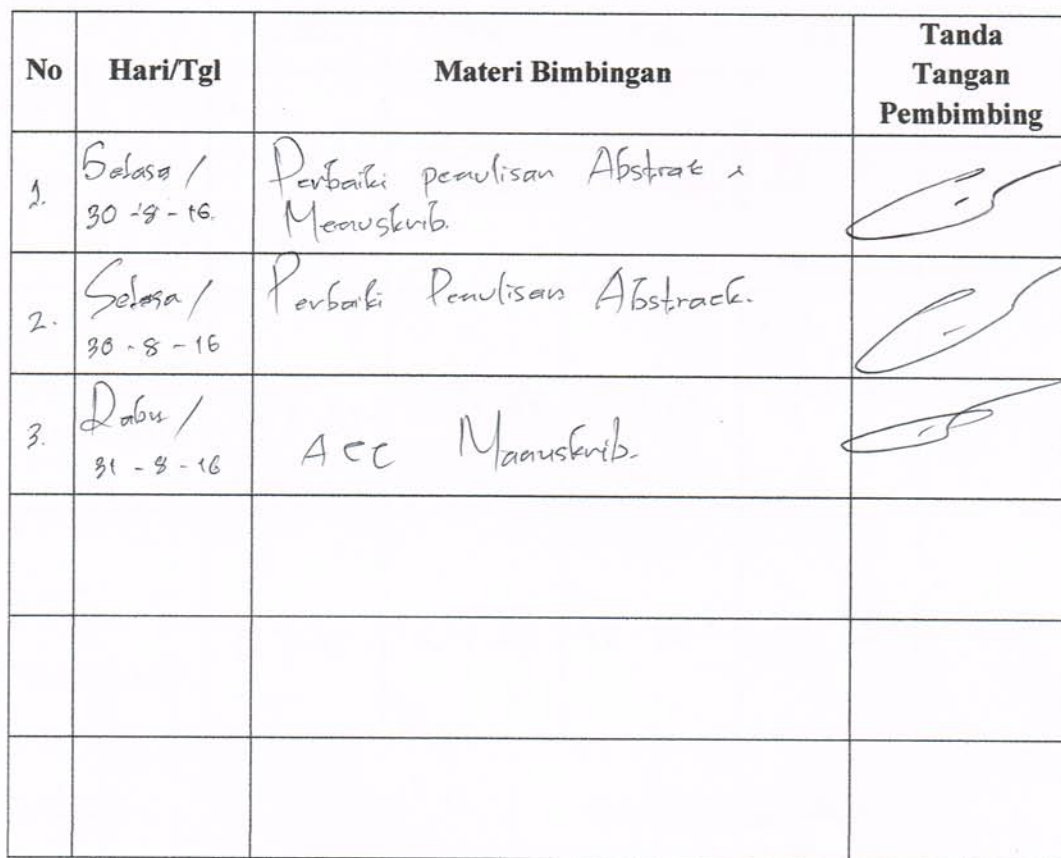 No Hari/Tgl Materi Bimbingan Tanda Tangan Pembimbing
1. Selasa / Perbaiki penulisan Abstrak &
30-8-16. Manuskrib.
2. Selasa / Perbaiki Penulisan Abstrack.
30-8-16
3. Rabu / ACC Manuskrib.
31-8-16